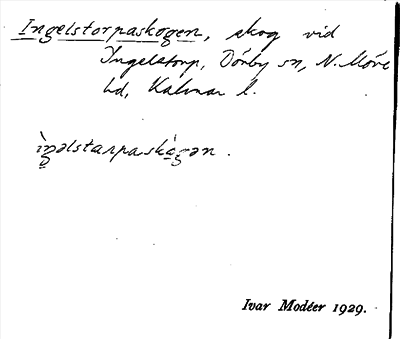 Ingelstorpaskogen, skog vid
Ingelstorp, Dörby sn, N. Möre
hd, Kalmar l.
ìŋəlstarpaskògən.
Ivar Modéer 1929.